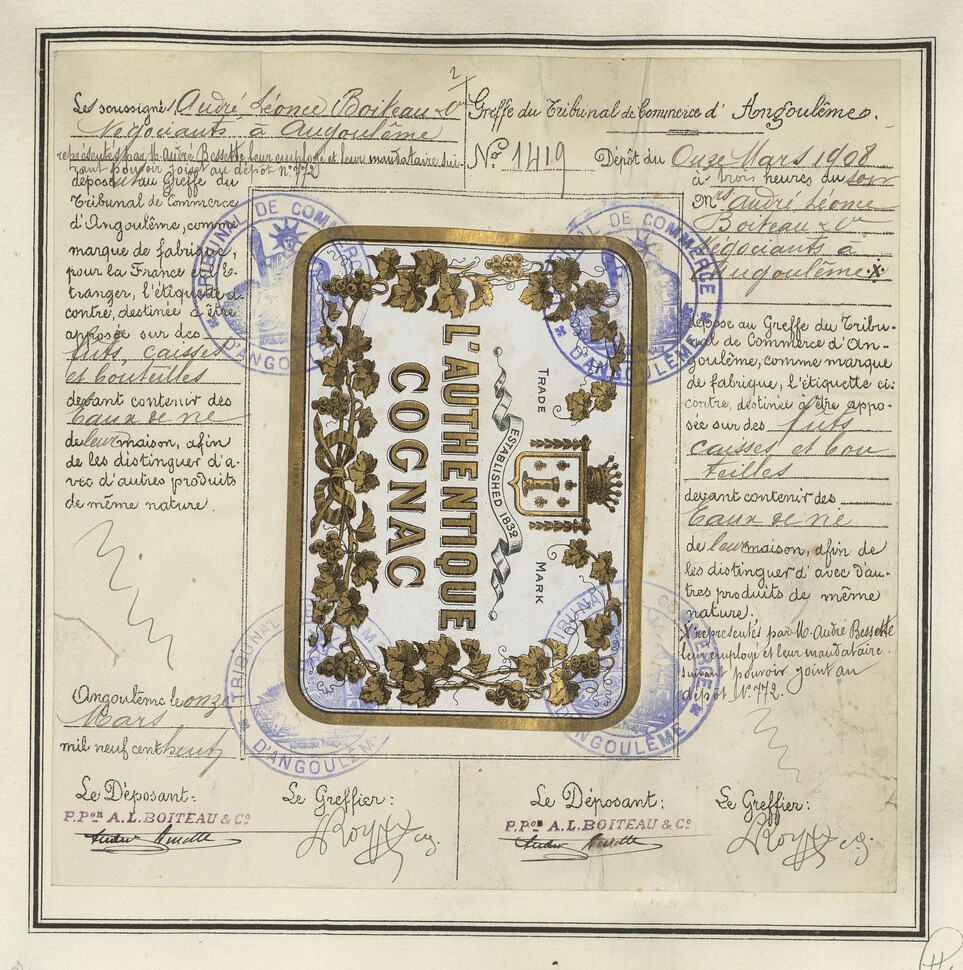 2
Les soussignés, André Léonce Boiteau & Cie
Négociants à Angoulême
représentés par M. André Bessette, leur employé et leur mandataire sui-
vant pouvoir joint au dépôt N° 772
déposent au Greffe du
Tribunal de Commerce
d'Angoulême, comme
marque de fabrique,
pour la France et l'É-
tranger, l'étiquette ci-
contre, destinée à être
apposée sur des
fûts, caisses
et bouteilles
devant contenir des
Eaux de vie
de leur maison, afin
de les distinguer d'a-
vec d'autres produits
de même nature.
Angoulême le onze
Mars
mil neuf cent huit
Le Déposant:
P. Pon A. L. BOITEAU & Co
Le Greffier:
Greffe du Tribunal de Commerce d' Angoulême.
N° 1419
Dépôt du Onze Mars 1908
à trois heures du soir
Mrs André Léonce
Boiteau & Cie
Négociants à
Angoulême X
dépose au Greffe du Tribu-
nal de Commerce d'An-
goulême, comme marque
de fabrique, l'étiquette ci-
contre, destinée à être appo-
sée sur des fûts
caisses et bou
teilles
devant contenir des
Eaux de vie
de leur maison, afin de
les distinguer d'avec d'au-
tres produits de même
nature.
X représentés par M. André Bessette
leur employé et leur mandataire.
suivant pouvoir joint au
dépôt N° 772.
Le Déposant:
P. Pon A. L. BOITEAU & Co
Le Greffier:
TRADE MARK
ESTABLISHED 1832
L'AUTHENTIQUE
COGNAC
TRIBUNAL DE COMMERCE
D'ANGOULÊME
TRIBUNAL DE COMMERCE
D'ANGOULÊME
TRIBUNAL
D'ANGOULÊME
TRIBUNAL DE COMMERCE
D'ANGOULÊME